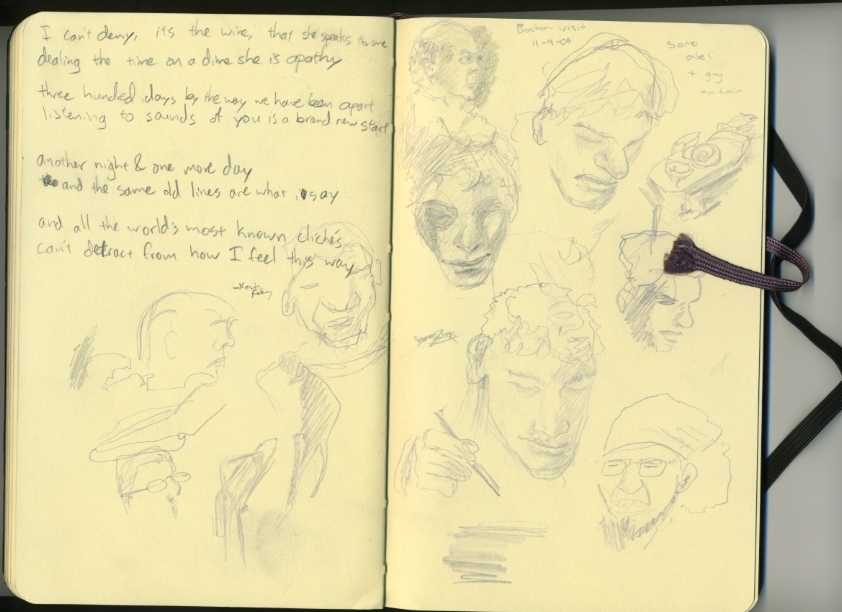 I can't deny, its the wire, that she speaks to me
dealing the time on a dime she is apathy
three hundred days by the way we have been apart
listening to sounds of you is a brand new start
another night & one more day
and the same old lines are what i say
and all the world's most known clichés
can't detract from how I feel this way
Boston visit
11-9-04
Some
+ guy